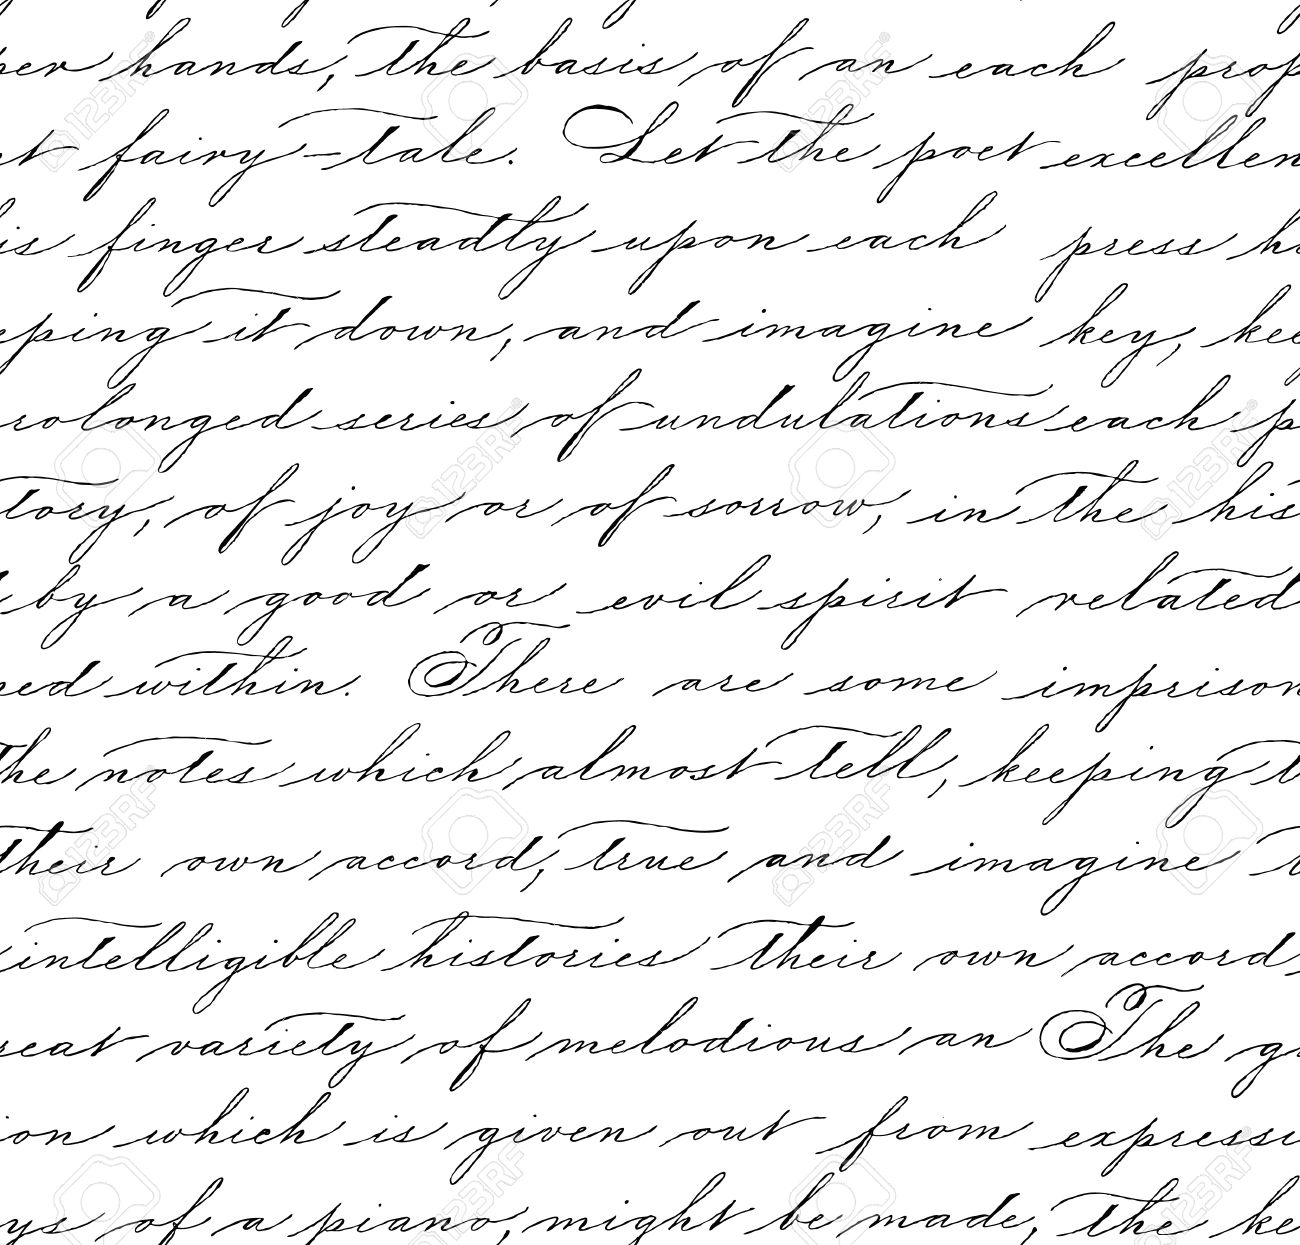 per hands, the basis of an each prop
t fairy-tale. Let the poet excellen
is finger steadly upon each press hi
eping it down, and imagine key, kee
rolonged series of undulations each p
tory, of joy or of sorrow, in the his
by a good or evil spirit related
ned within. There are some imprison
the notes which almost tell, keeping t
their own accord, true and imagine
intelligible histories their own accord,
reat variety of melodious an The gr
ion which is given out from expressi
ys of a piano, might be made, the ke